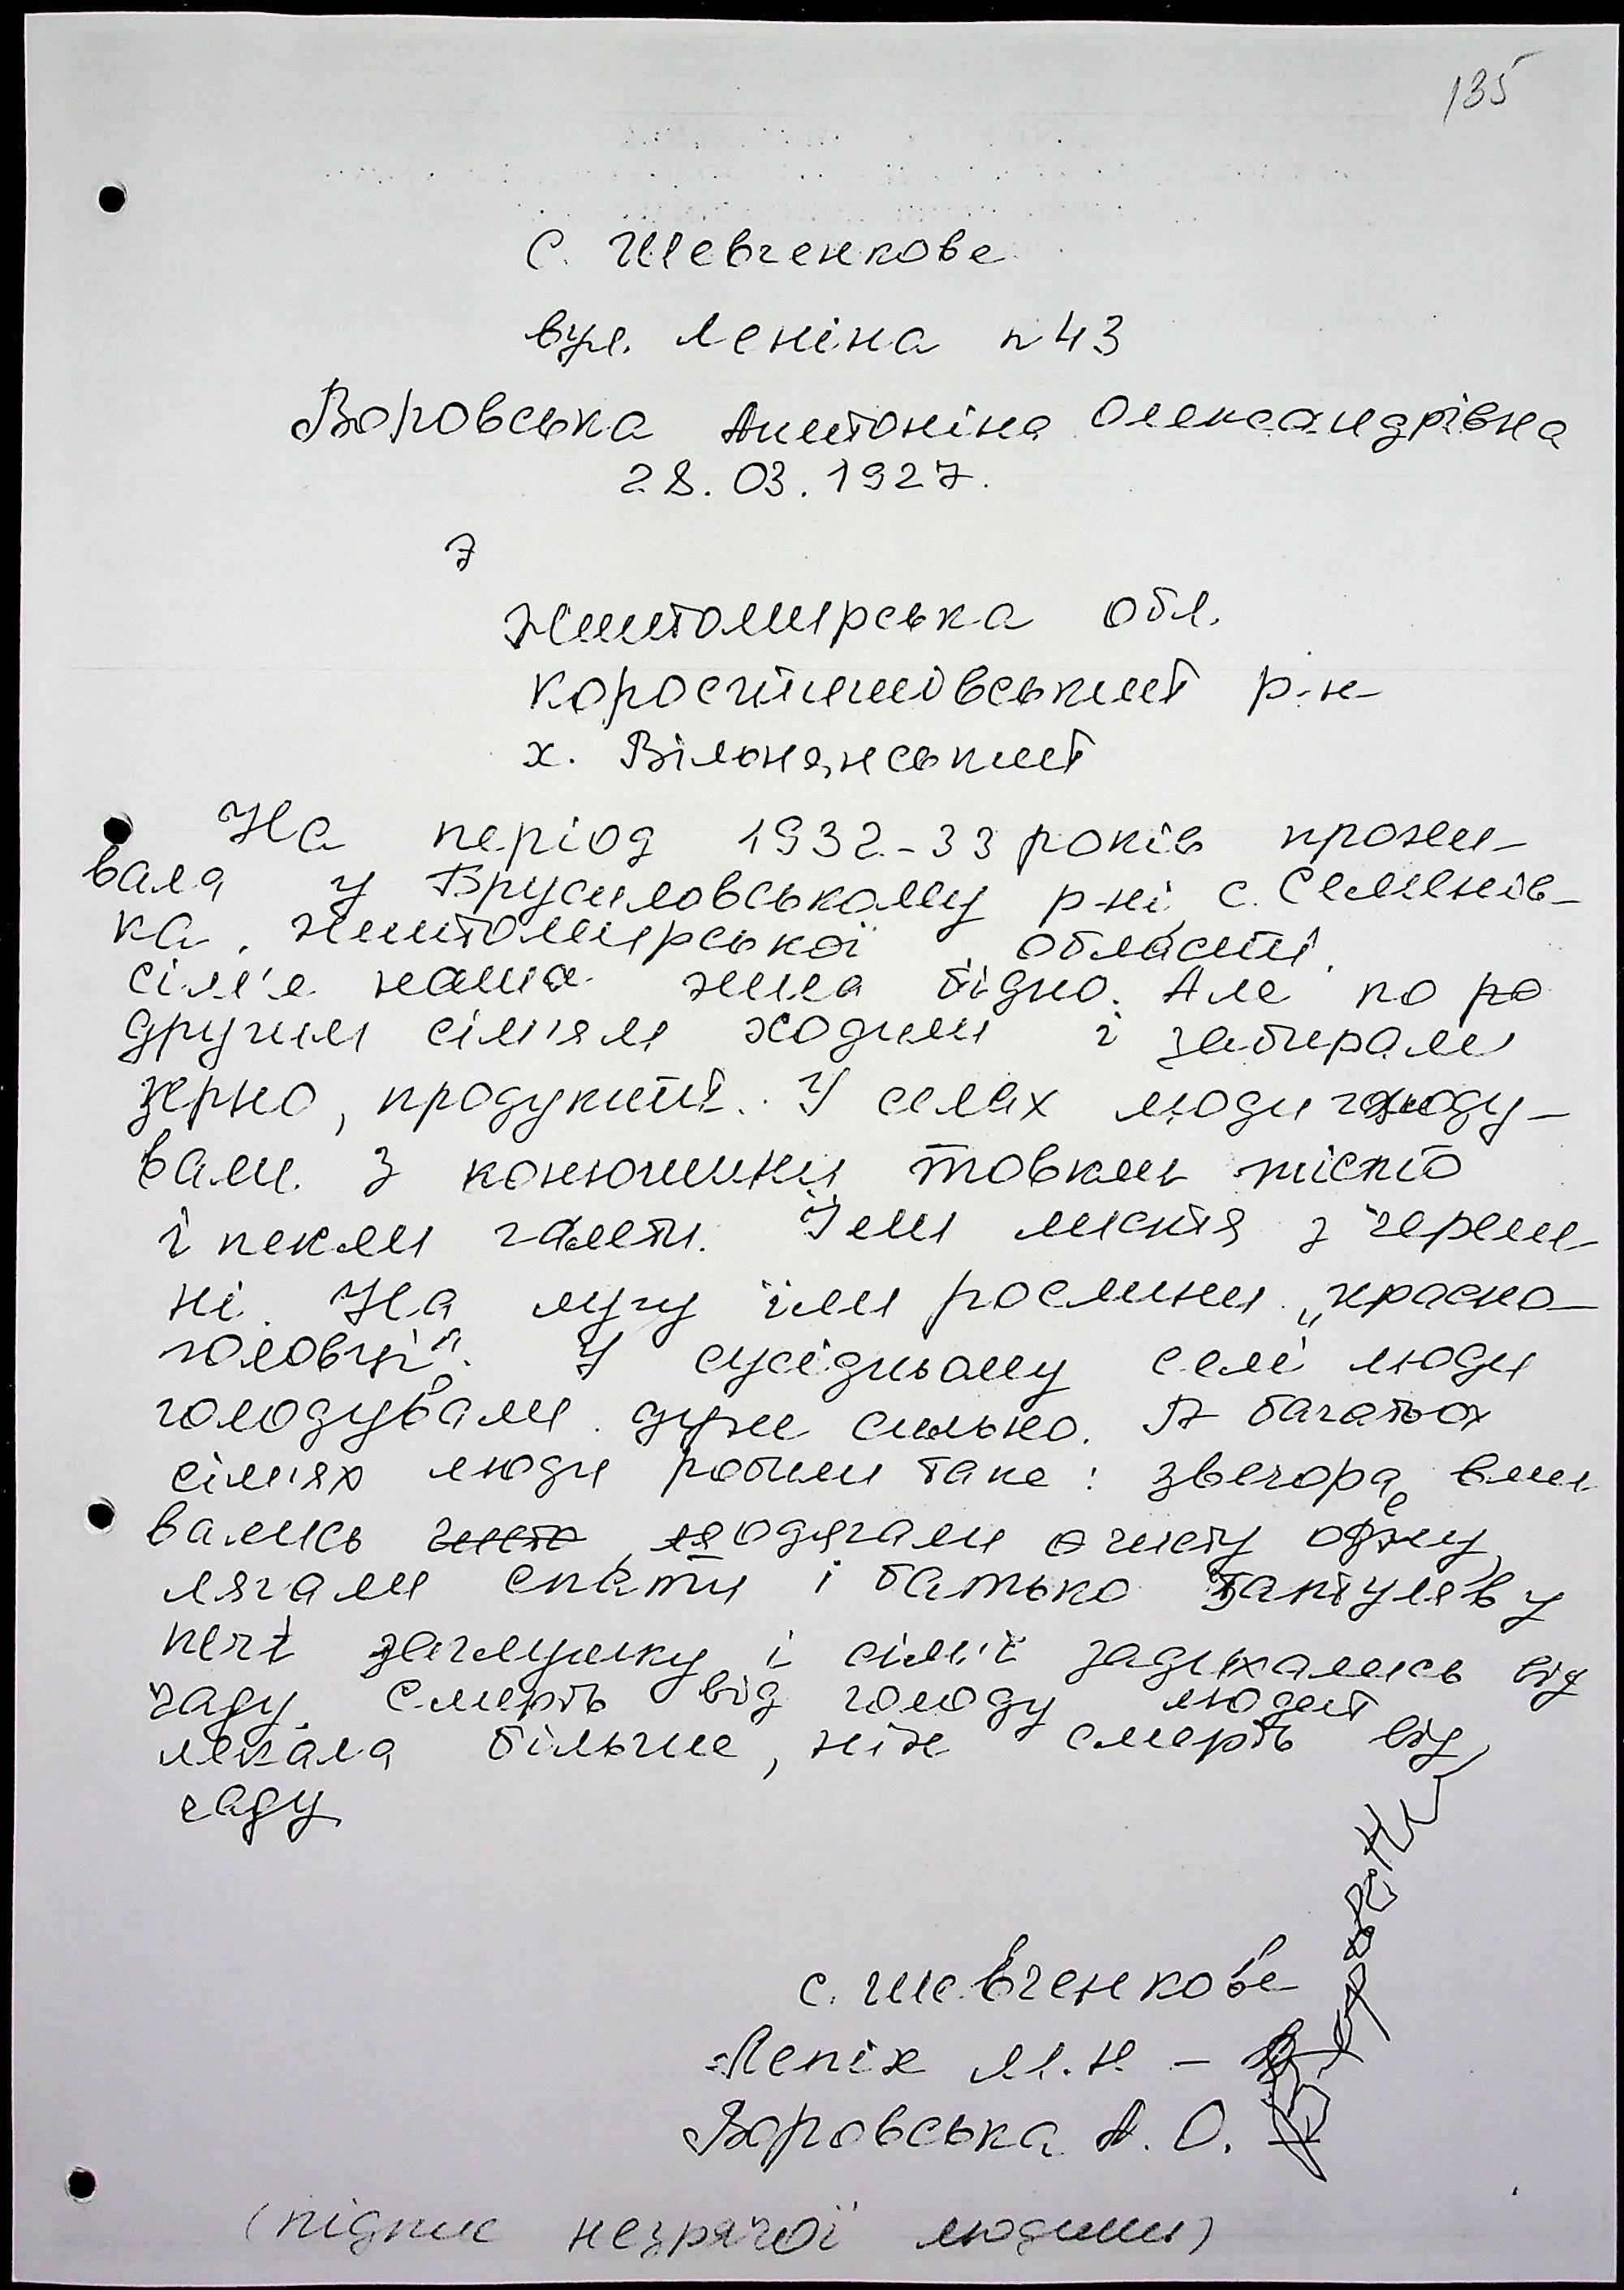 135
С. Шевченкове
вул. Леніна n 43
Воровська Антоніна Олександрівна
28.03.1927.
з
Житомирська обл.
Коростишівський р-н
х. Вільнянський
На період 1932-33 років прожи-
вала у Брусиловському р-ні, с. Семенів-
ка, Житомирської області.
сім'я наша жила бідно. Але по ро
другим сім'ям ходили і забирали
зерно, продукти. У селах люди голоду-
вали. З конюшини товкли тісто
і пекли галети. Їли листя з череш-
ні. На лугу їли рослини „красно-
головці". У сусідньому селі люди
голодували дуже сильно. В багатьох
сім'ях люди робили таке: звечора вми
вались чисто, одягали чисту одежу,
лягали спати і батько затуляв у
печі заглушку і сім'ї задихались від
чаду. Смерть від голоду людей
лякала більше, ніж смерть від
чаду
с. Шевченкове
Лепіх М.Н –
Воровська А.О.
(підпис незрячої людини)